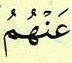 عَنْهُمُ